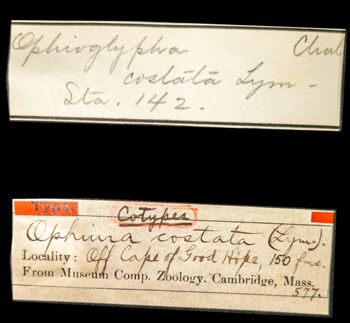 Ophioglypha Chal
costata Lym-
Sta. 142.
Type
Cotypes
Ophiura costata (Lym.).
Locality: Off Cape of Good Hope, 150 fms.
From Museum Comp. Zoölogy, Cambridge, Mass.
577.